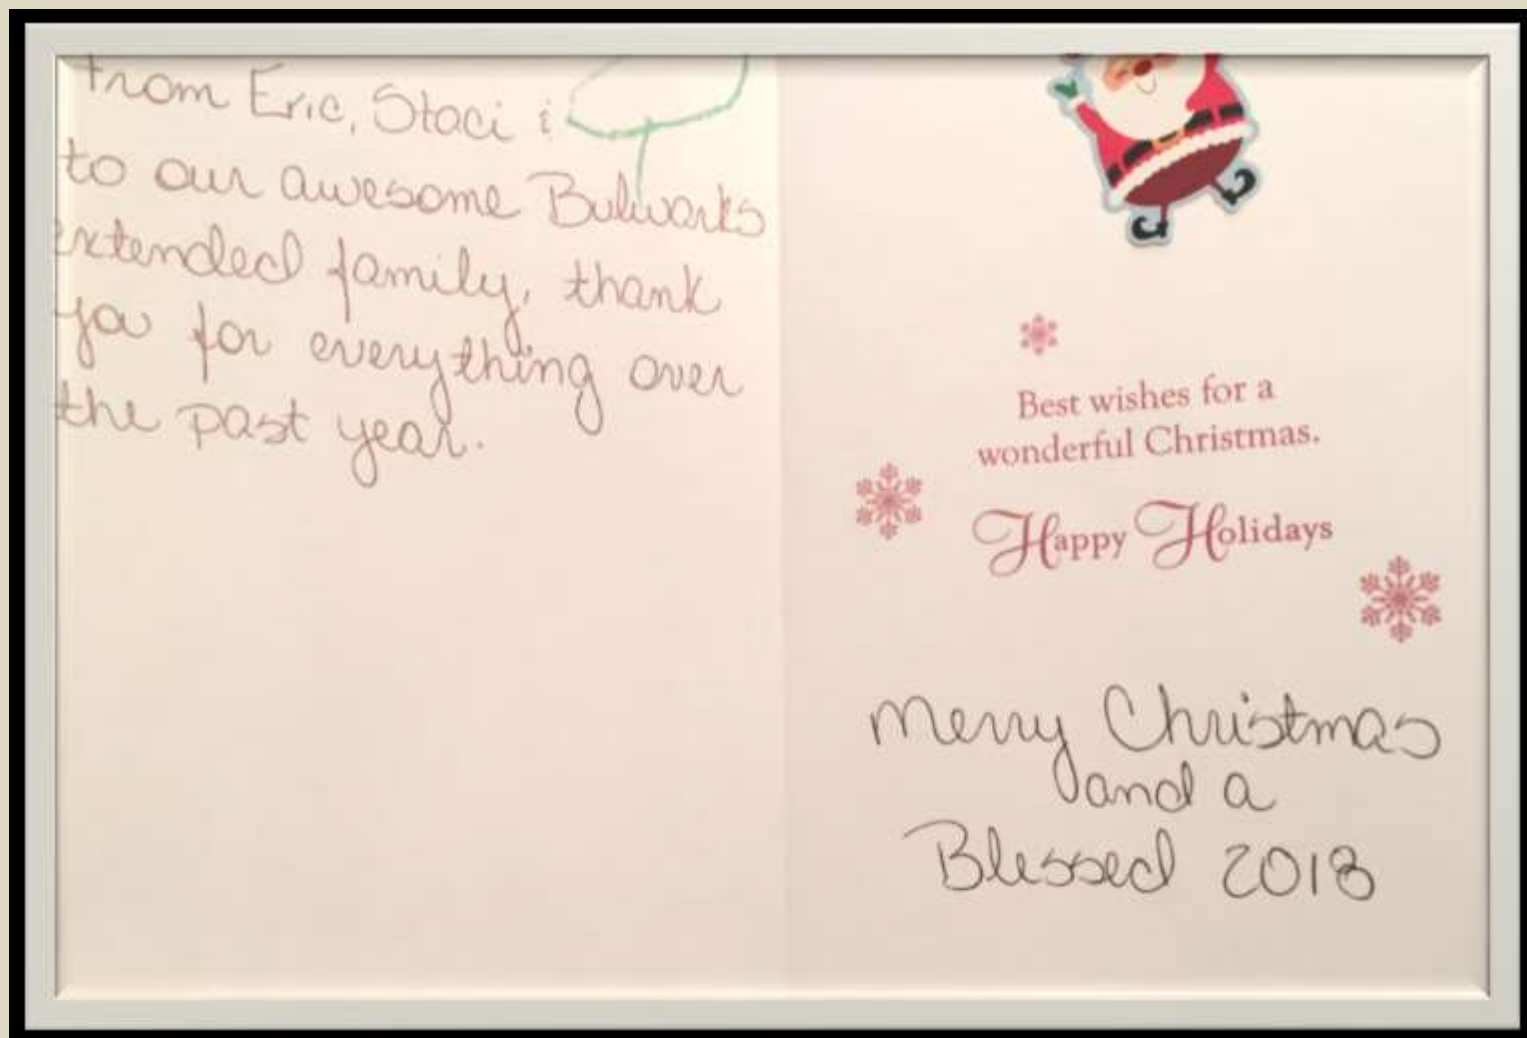 From Eric, Staci &
to our awesome Bulwarks
extended family, thank
you for everything over
the past year.
Best wishes for a
wonderful Christmas.
Happy Holidays
Merry Christmas
and a
Blessed 2018